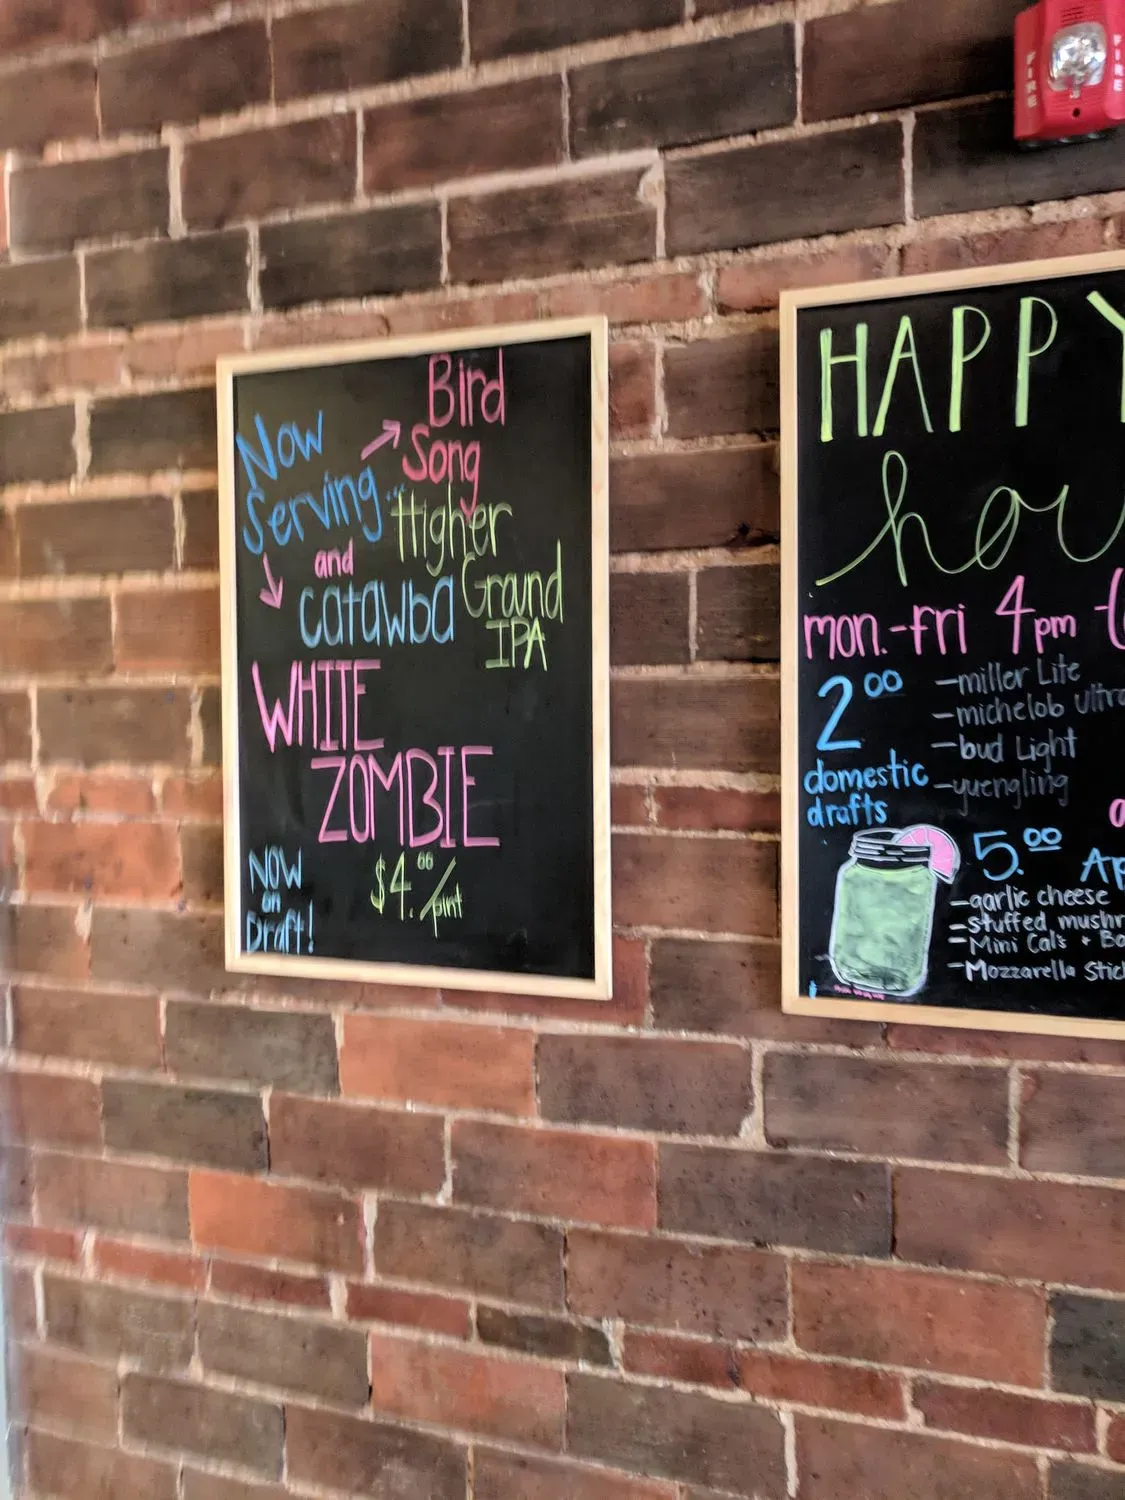 Now
Serving...
Bird
Song
Higher
Ground
IPA
and
catawba
WHITE
ZOMBIE
$4.00/pint
NOW
on
Draft!
HAPPY
hou
mon.-fri 4pm
2.00
domestic
drafts
-miller Lite
-michelob Ultra
-bud Light
-yuengling
5.00
AP
-garlic cheese
-stuffed mushr
-Mini Cal's + Bo
-Mozzarella Stic
FIRE
FIRE